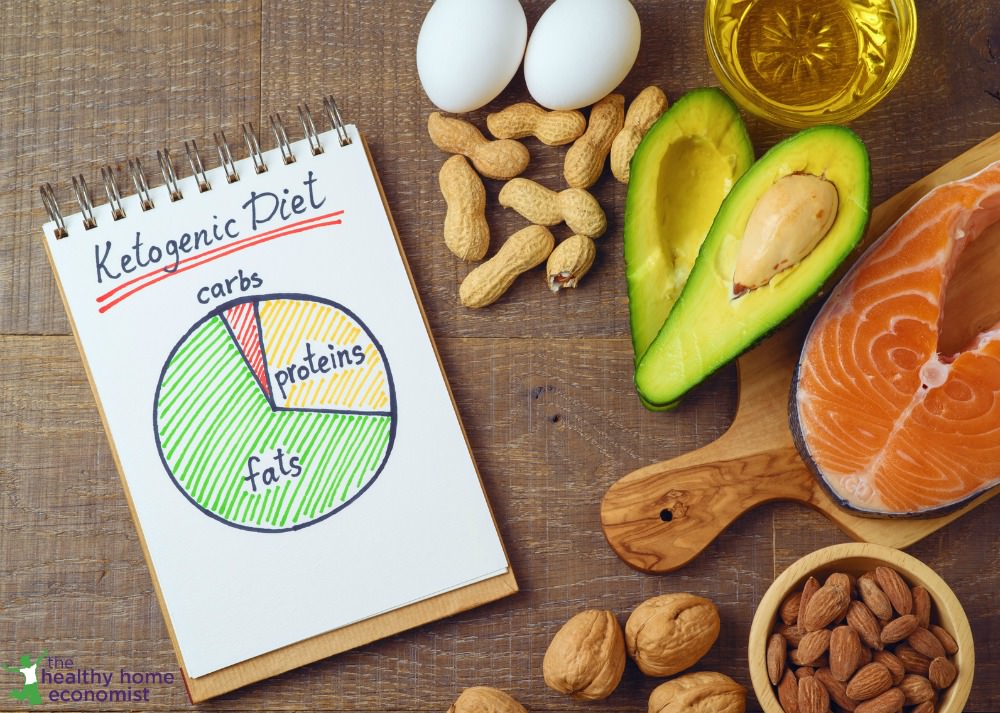 Ketogenic Diet
carbs
proteins
fats
the
healthy home
economist